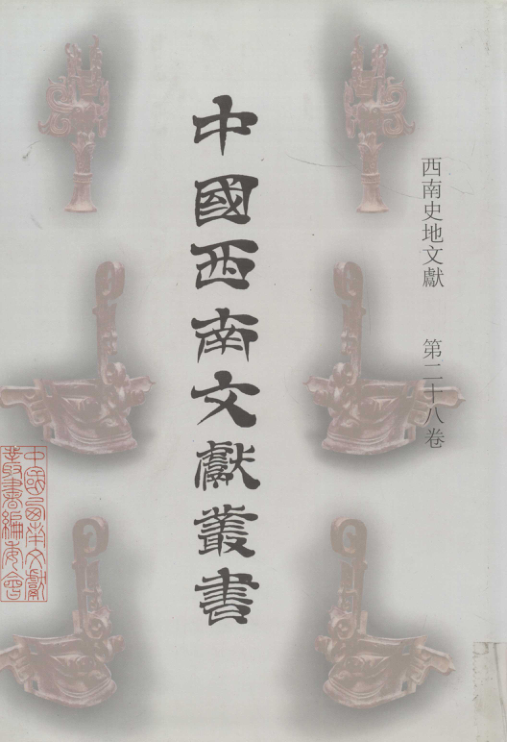 西南史地文獻 第二十八卷
中國西南文獻叢書
中國西南文獻
叢書編委會